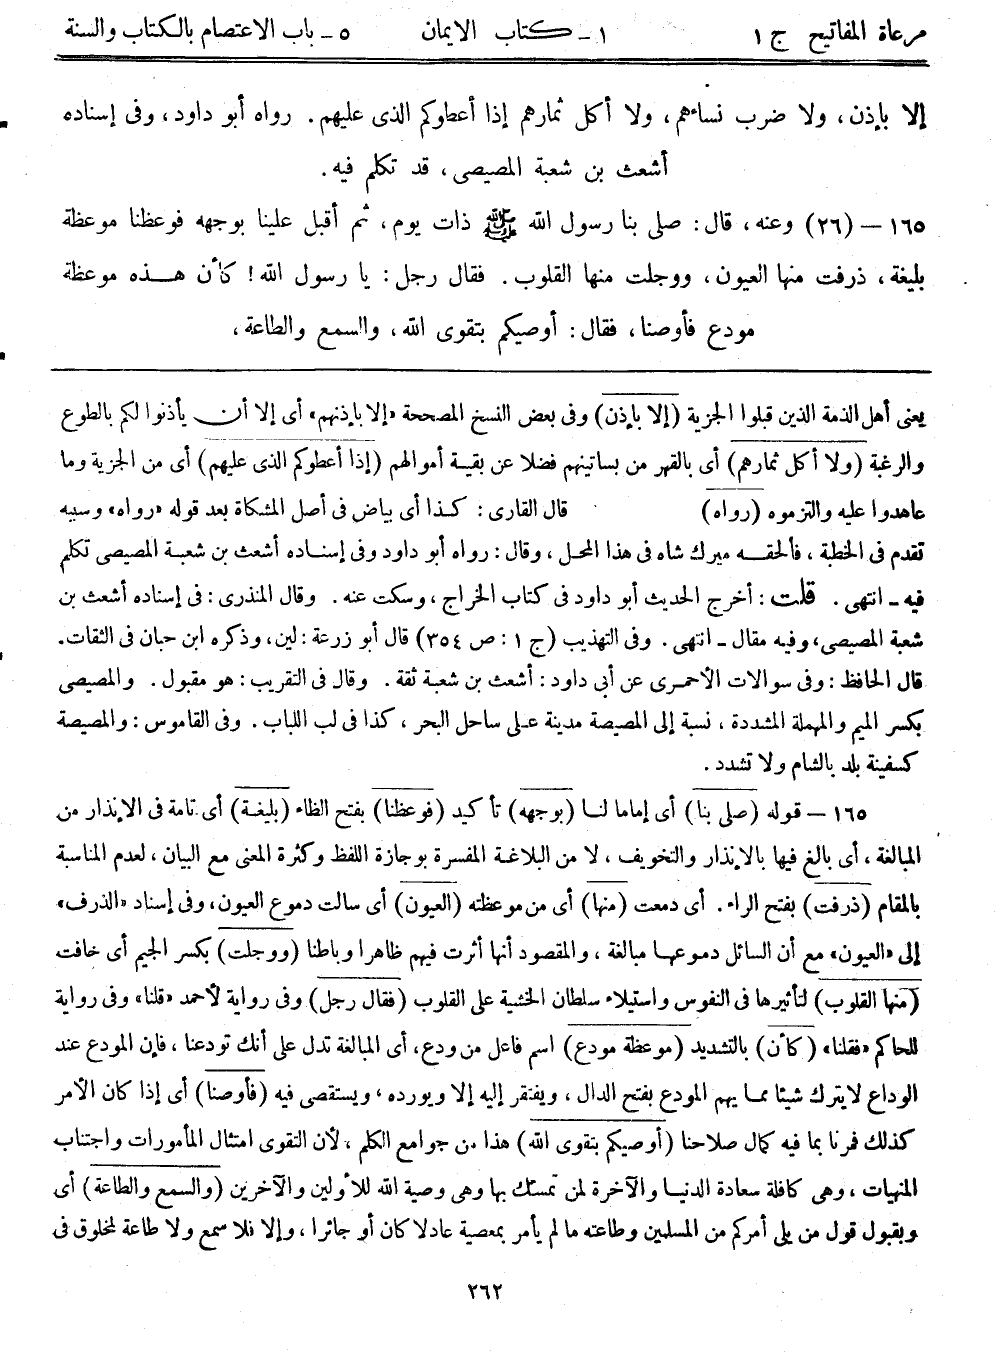 مرعاة المفاتيح ج ١ ١ ـ كتاب الايمان ٥ ـ باب الاعتصام بالكتاب والسنة
إلا بإذن، ولا ضرب نساءهم، ولا أكل ثمارهم إذا أعطوكم الذى عليهم. رواه أبو داود، وفى إسناده
أشعث بن شعبة المصيصى، قد تكلم فيه.
١٦٥ – (٢٦) وعنه، قال: صلى بنا رسول الله ﷺ ذات يوم، ثم أقبل علينا بوجهه فوعظنا موعظة
بليغة، ذرفت منها العيون، ووجلت منها القلوب. فقال رجل: يا رسول الله! كأن هذه موعظة
مودع فأوصنا، فقال: أوصيكم بتقوى الله، والسمع والطاعة،
يعنى أهل الذمة الذين قبلوا الجزية (إلا بإذن) وفى بعض النسخ المصححة «إلا بإذنهم» أى إلا أن يأذنوا لكم بالطوع
والرغبة (ولا أكل ثمارهم) أى بالقهر من بساتينهم فضلا عن بقية أموالهم (إذا أعطوكم الذى عليهم) أى من الجزية وما
عاهدوا عليه والتزموه (رواه) قال القارى: كذا أى بياض فى أصل المشكاة بعد قوله «رواه» وسببه
تقدم فى الخطبة، فألحقه ميرك شاه فى هذا المحل، وقال: رواه أبو داود وفى إسناده أشعث بن شعبة المصيصى تكلم
فيه ـ انتهى. قلت: أخرج الحديث أبو داود فى كتاب الخراج، وسكت عنه. وقال المنذرى: فى إسناده أشعث بن
شعبة المصيصى، وفيه مقال ـ انتهى. وفى التهذيب (ج ١: ص ٣٥٤) قال أبو زرعة: لين، وذكره ابن حبان فى الثقات.
قال الحافظ: وفى سوالات الآجرى عن أبى داود: أشعث بن شعبة ثقة. وقال فى التقريب: هو مقبول. والمصيصى
بكسر الميم والمهملة المشددة، نسبة إلى المصيصة مدينة على ساحل البحر، كذا فى لب اللباب. وفى القاموس: والمصيصة
كسفينة بلد بالشام ولا تشدد.
١٦٥ – قوله (صلى بنا) أى إماما لنا (بوجهه) تأكيد (فوعظنا) بفتح الظاء (بليغة) أى تامة فى الإنذار من
المبالغة، أى بالغ فيها بالإنذار والتخويف، لا من البلاغة المفسرة بوجازة اللفظ وكثرة المعنى مع البيان، لعدم المناسبة
بالمقام (ذرفت) بفتح الراء. أى دمعت (منها) أى من موعظته (العيون) أى سالت دموع العيون، وفى إسناد «الذرف»
إلى «العيون» مع أن السائل دموعها مبالغة، والمقصود أنها أثرت فيهم ظاهرا وباطنا (ووجلت) بكسر الجيم أى خافت
(منها القلوب) لتأثيرها فى النفوس واستيلاء سلطان الخشية على القلوب (فقال رجل) وفى رواية لأحمد «قلنا» وفى رواية
للحاكم «فقلنا» (كأن) بالتشديد (موعظة مودع) اسم فاعل من ودع، أى المبالغة تدل على أنك تودعنا، فإن المودع عند
الوداع لايترك شيئا مما يهم المودع بفتح الدال، ويفتقر إليه إلا ويورده، ويستقصى فيه (فأوصنا) أى إذا كان الأمر
كذلك فمرنا بما فيه كمال صلاحنا (أوصيكم بتقوى الله) هذا من جوامع الكلم، لأن التقوى امتثال المأمورات واجتناب
المنهيات، وهى كافلة سعادة الدنيا والآخرة لمن تمسك بها وهى وصية الله للأولين والآخرين (والسمع والطاعة) أى
وبقبول قول من يلى أمركم من المسلمين وطاعته ما لم يأمر بمعصية عادلا كان أو جائرا، وإلا فلا سمع ولا طاعة لمخلوق فى
٢٦٢